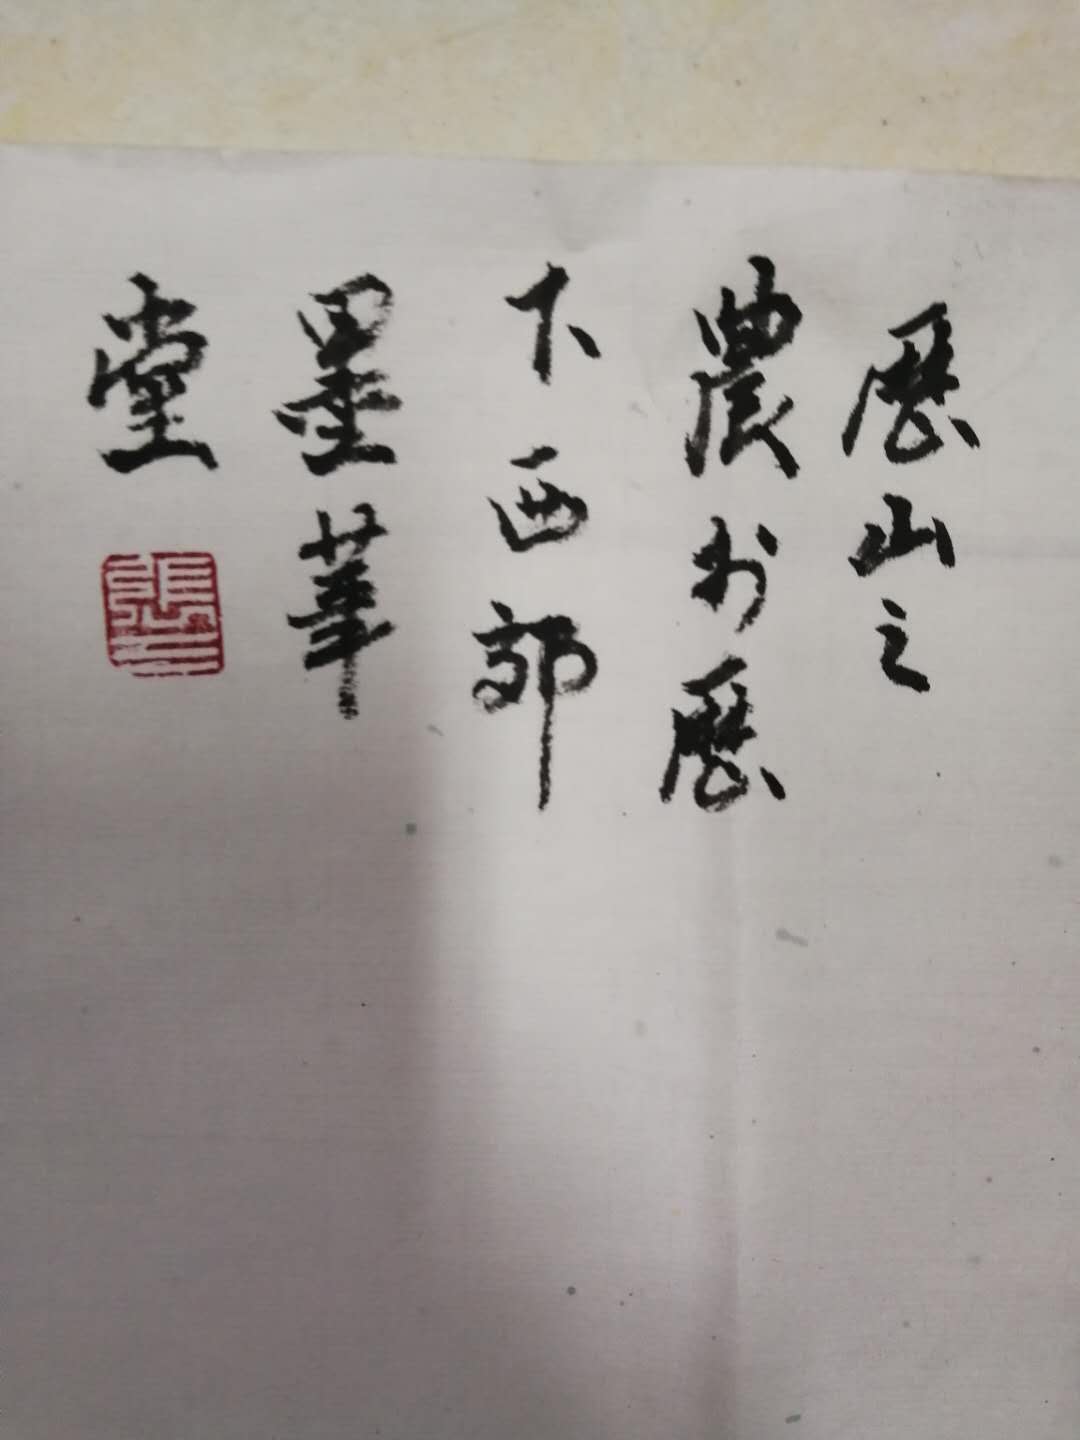 歷山之
農於歷
下西郭
墨華
堂